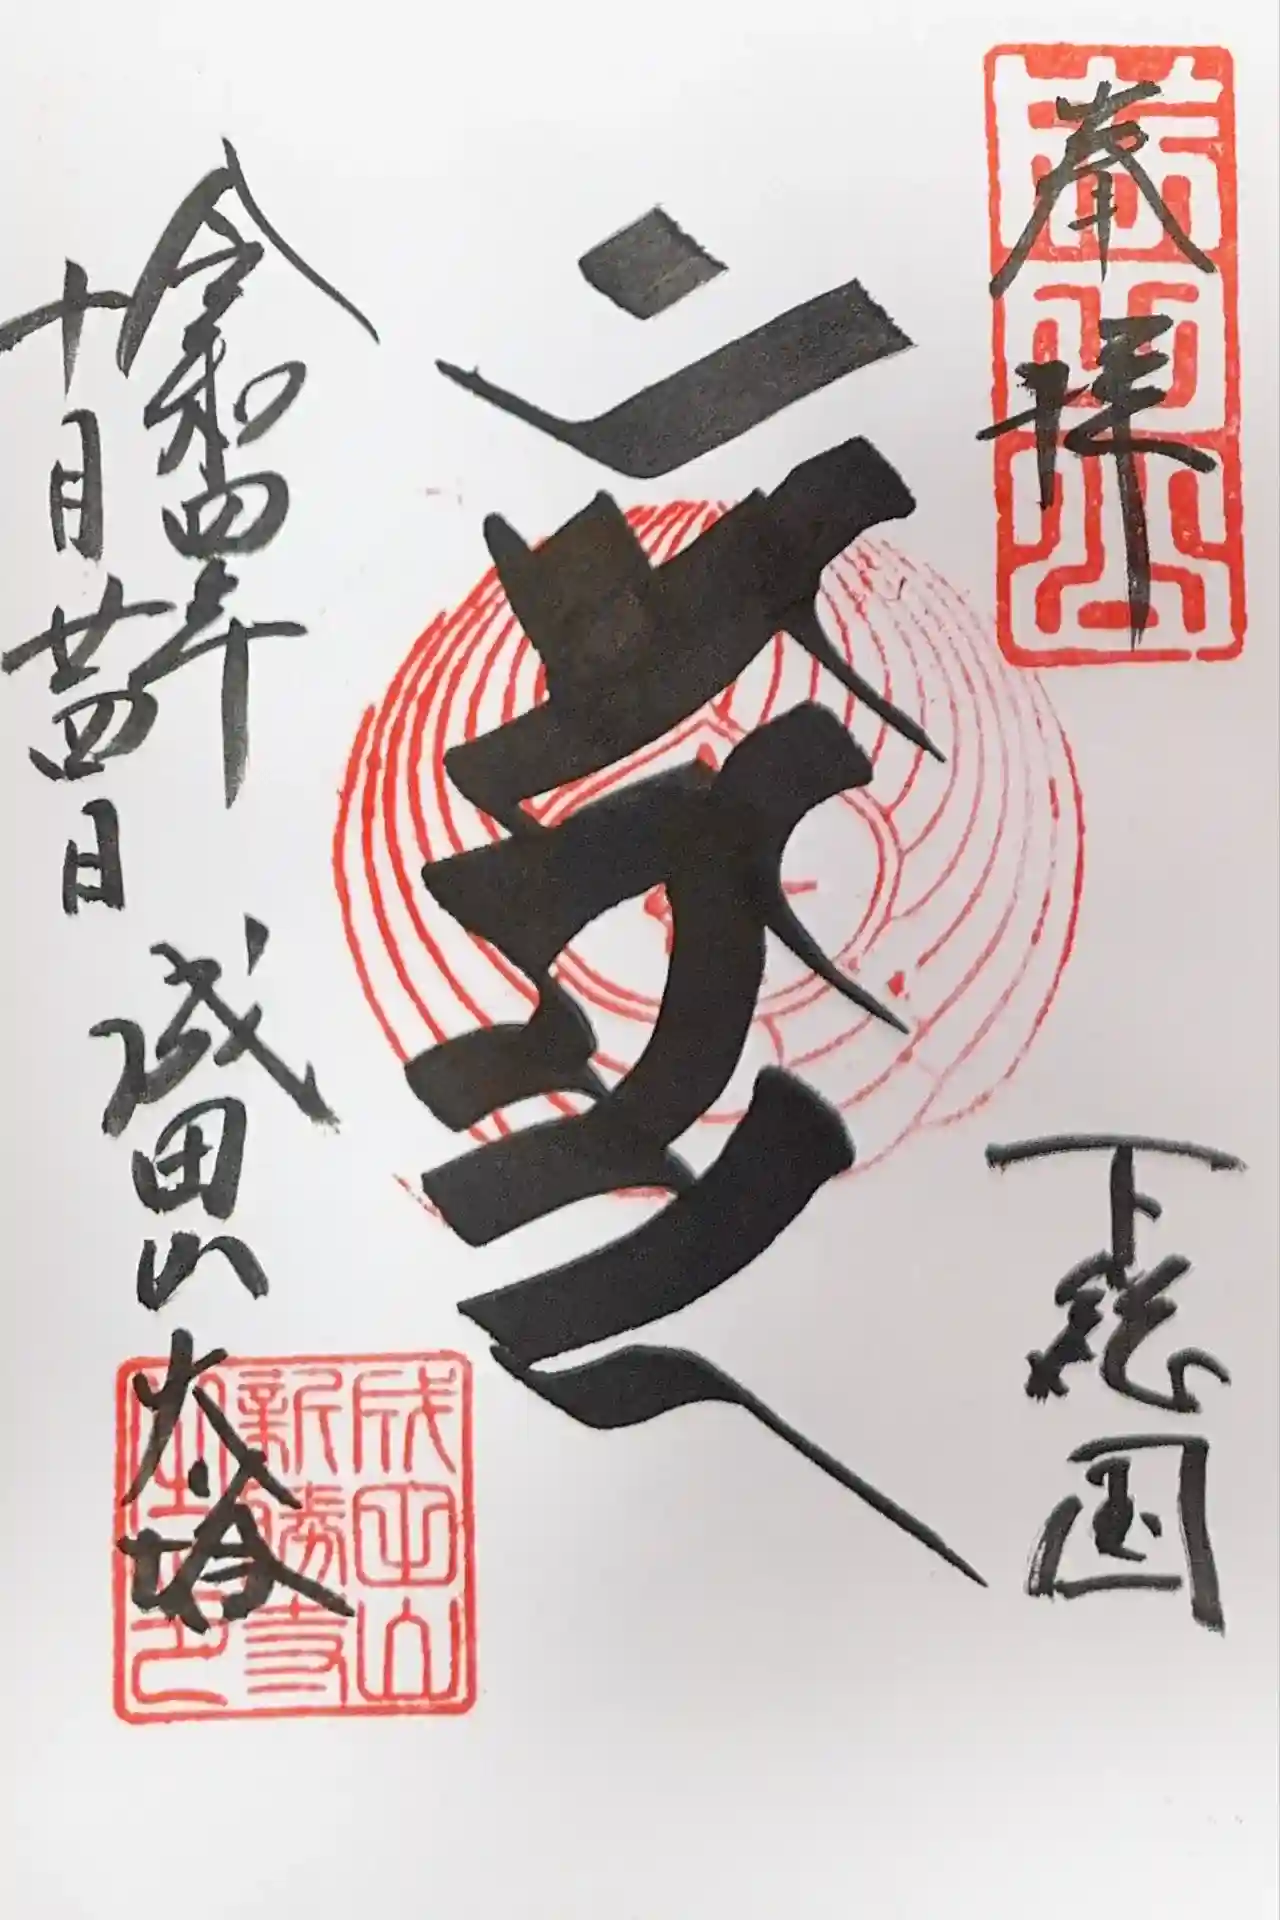 奉拝
下総国
令和四年
十月廿四日
成田山大塔
成田山
新勝寺
之印